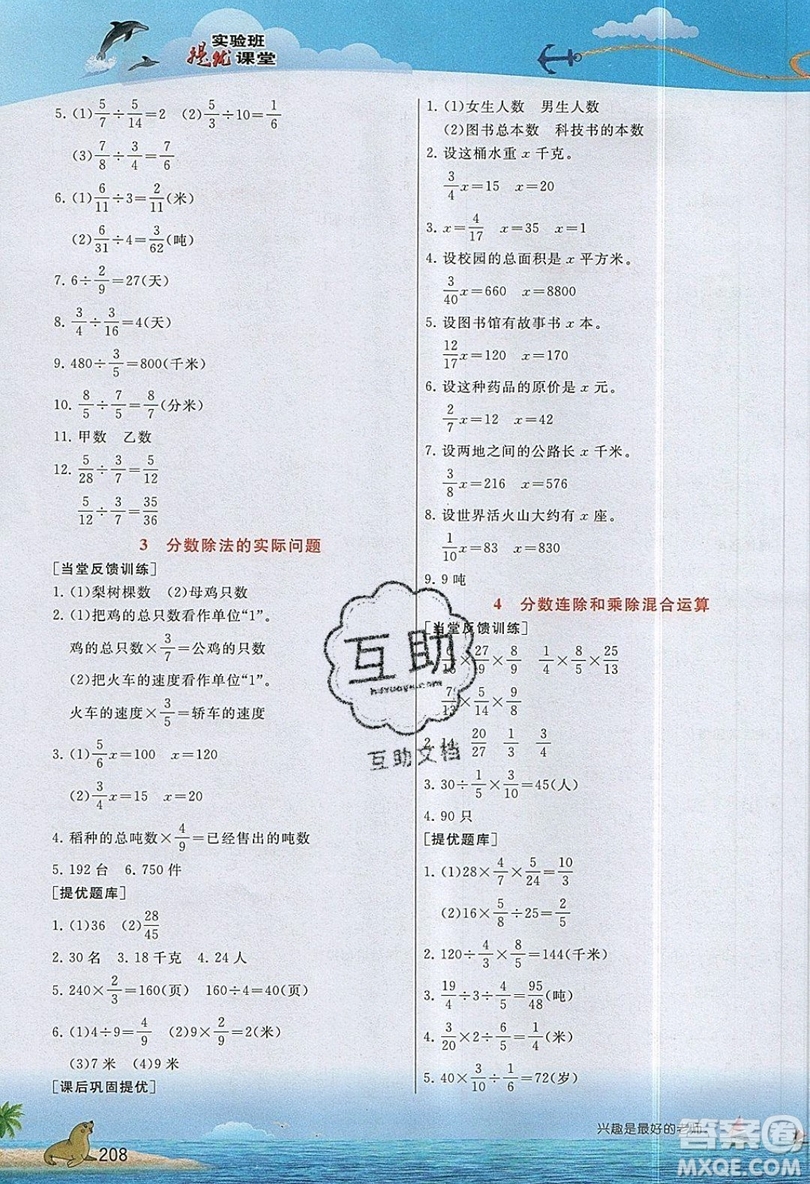 实验班
提优课堂
5. (1)5/7÷5/14=2 (2)5/3÷10=1/6
(3)7/8÷3/4=7/6
6. (1)6/11÷3=2/11(米)
(2)6/31÷4=3/62(吨)
7. 6÷2/9=27(天)
8. 3/4÷3/16=4(天)
9. 480÷3/5=800(千米)
10. 8/5÷7/5=8/7(分米)
11. 甲数 乙数
12. 5/28÷3/7=5/12
5/12÷3/7=35/36
3 分数除法的实际问题
[当堂反馈训练]
1. (1)梨树棵数 (2)母鸡只数
2. (1)把鸡的总只数看作单位“1”。
鸡的总只数×3/7=公鸡的只数
(2)把火车的速度看作单位“1”。
火车的速度×3/7=轿车的速度
3. (1)5/6x=100 x=120
(2)3/4x=15 x=20
4. 稻种的总吨数×4/9=已经售出的吨数
5. 192台 6. 750件
[提优题库]
1. (1)36 (2)28/45
2. 30名 3. 18千克 4. 24人
5. 240×2/3=160(页) 160÷4=40(页)
6. (1)4÷9=4/9 (2)9×2/9=2(米)
(3)7米 (4)9米
[课后巩固提优]
208
1. (1)女生人数 男生人数
(2)图书总本数 科技书的本数
2. 设这桶水重x千克。
3/4x=15 x=20
3. x=4/17 x=35 x=1
4. 设校园的总面积是x平方米。
3/40x=660 x=8800
5. 设图书馆有故事书x本。
12/17x=120 x=170
6. 设这种药品的原价是x元。
2/7x=12 x=42
7. 设两地之间的公路长x千米。
3/8x=216 x=576
8. 设世界活火山大约有x座。
1/10x=83 x=830
9. 9吨
4 分数连除和乘除混合运算
[当堂反馈训练]
×27/19×8/9 1/4×8/25×25/13
×5/14×9/8
2. 20/27 1/3 3/4
3. 30÷1/5×3/10=45(人)
4. 90只
[提优题库]
1. (1)28×4/7×5/24=10/3
(2)16×5/8÷25=2/5
2. 120÷4/3×8/5=144(千米)
3. 19/4÷3÷4/5=95/48(吨)
4. 3/4×2÷6=1/4(米)
5. 40×3/10÷1/6=72(岁)
兴趣是最好的老师
互助
互助文档
答案圈
MXQE.COM